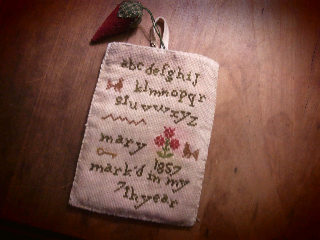 abcdefghij
klmnopqr
stuvwxyz
mary
1857
mark'd in my
7thyear